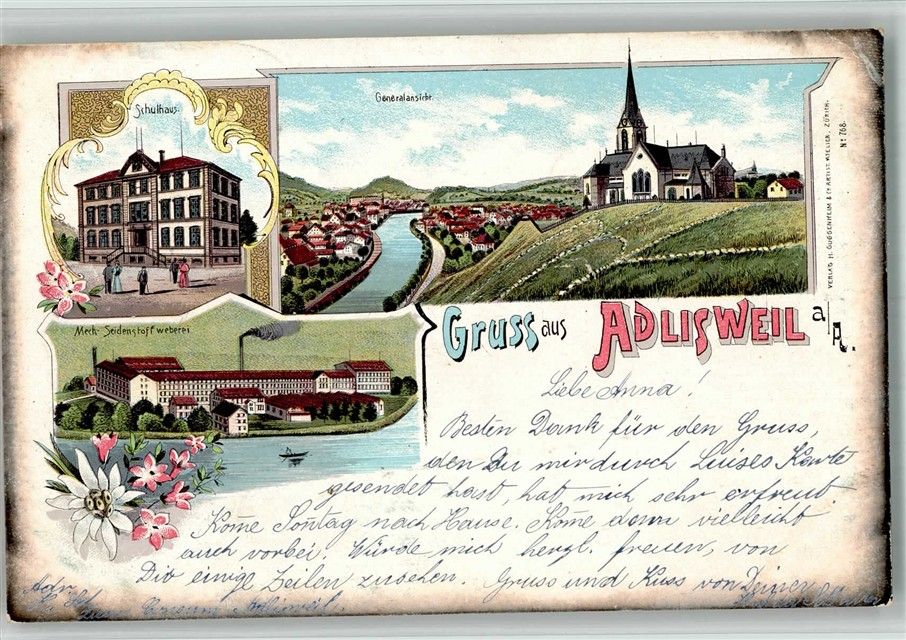 Schulhaus.
Generalansicht.
Mech. Seidenstoffweberei
VERLAG H. GUGGENHEIM & Co ARTIST. ATELIER, ZÜRICH.
No 768.
Gruss aus ADLISWEIL a/A.
Liebe Anna!
Besten Dank für den Gruss,
den Du mir durch Luises Karte
gesendet hast, hat mich sehr erfreut.
Kome Sontag nach Hause. Kome dann vielleicht
auch vorbei. Würde mich herzl. freuen, von
Dir einige Zeilen zusehen. Gruss und Kuss von Deiner
Adr.